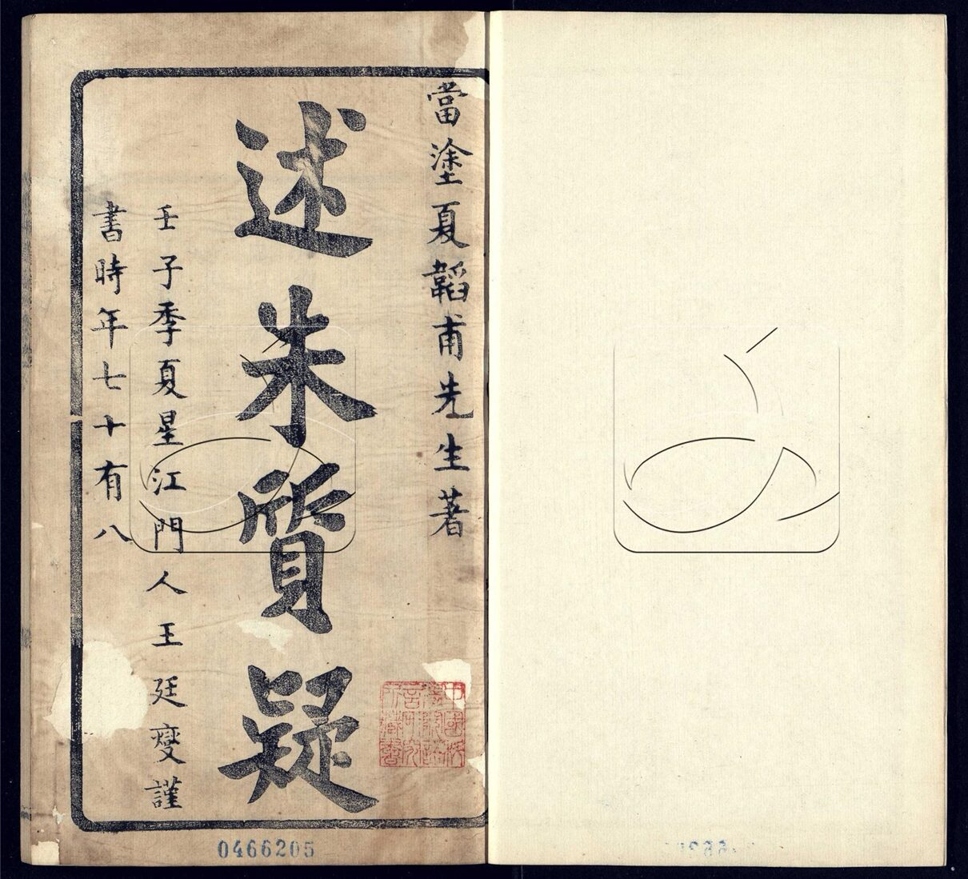 當塗夏韜甫先生著
述朱質疑
壬子季夏星江門人王廷燮謹
書時年七十有八
0466205